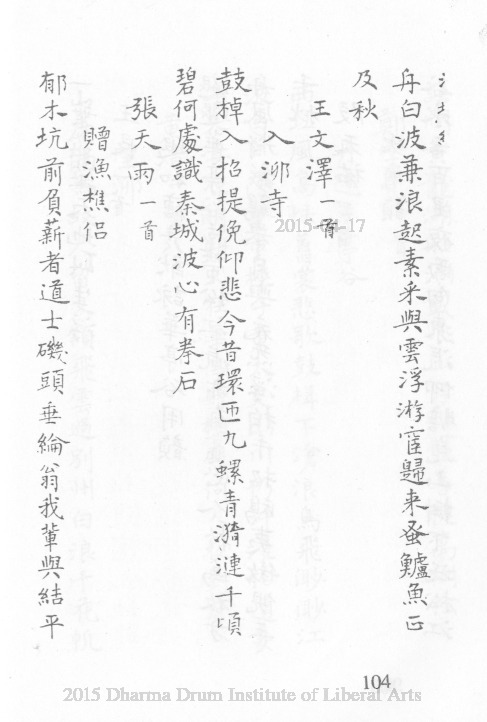 舟白波兼浪起素采與雲浮游宦歸来蚤鱸魚正
及秋
王文澤一首
入泖寺
鼓棹入招提俛仰悲今昔環匝九螺青漪漣千頃
碧何處識秦城波心有拳石
張天雨一首
贈漁樵侶
郁木坑前負薪者道士磯頭垂綸翁我輩與結平
2015-01-17
104
2015 Dharma Drum Institute of Liberal Arts